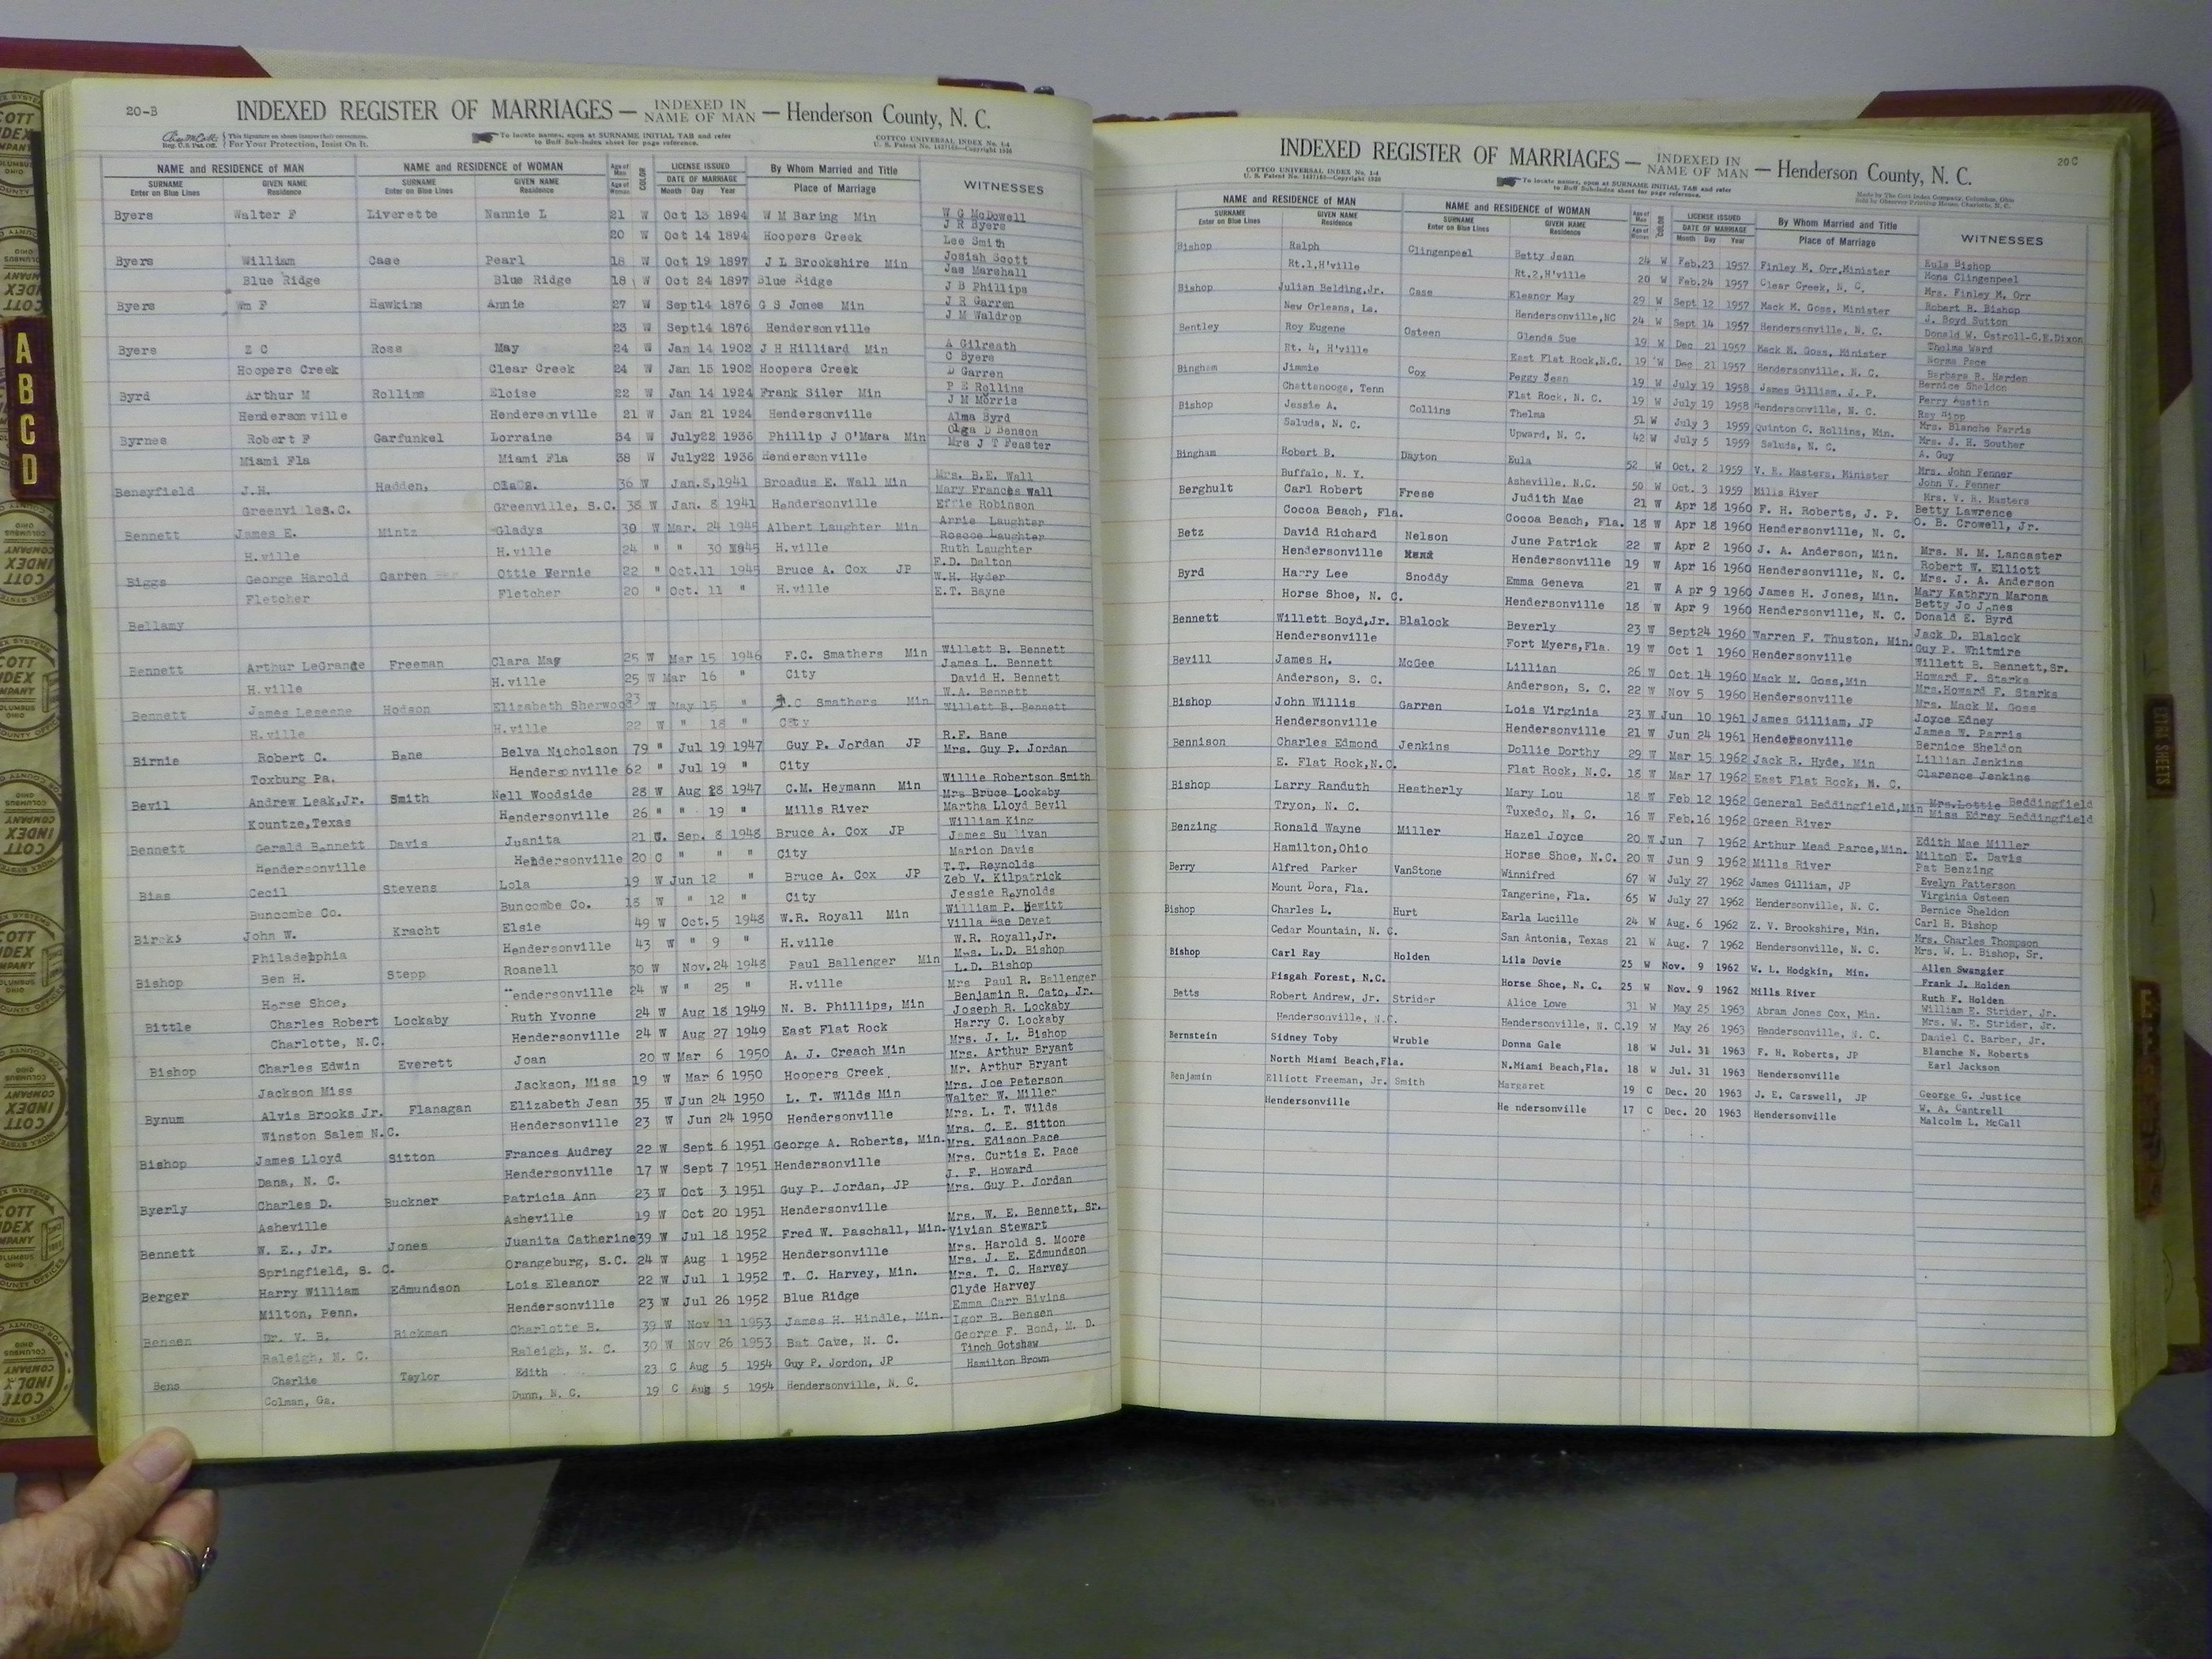 20-B
INDEXED REGISTER OF MARRIAGES — INDEXED IN NAME OF MAN — Henderson County, N. C.
This Signature on sheets insures their correctness.
Reg. U.S. Pat. Off. For Your Protection, Insist On It.
To locate names, open at SURNAME INITIAL TAB and refer
to Buff Sub-Index sheet for page reference.
COTTCO UNIVERSAL INDEX No. 1-4
NAME and RESIDENCE OF MAN NAME and RESIDENCE OF WOMAN Age of Man Age of Woman COLOR LICENSE ISSUED DATE OF MARRIAGE By Whom Married and Title WITNESSES
SURNAME Enter on Blue Lines GIVEN NAME Residence SURNAME Enter on Blue Lines GIVEN NAME Residence Month Day Year Place of Marriage
Byers Walter F Liverette Nannie L 21 W Oct 13 1894 W M Baring Min W G McDowell
J R Byers
20 W Oct 14 1894 Hoopers Creek Lee Smith
Byers William Case Pearl 18 W Oct 19 1897 J L Brookshire Min Josiah Scott
Jas Marshall
Blue Ridge Blue Ridge 18 W Oct 24 1897 Blue Ridge J B Phillips
Byers Wm F Hawkins Annie 27 W Sept14 1876 G S Jones Min J R Garren
J M Waldrop
23 W Sept14 1876 Hendersonville
Byers Z C Ross May 24 W Jan 14 1902 J H Hilliard Min A Gilreath
C Byers
Hoopers Creek Clear Creek 24 W Jan 15 1902 Hoopers Creek D Garren
Byrd Arthur M Rollins Eloise 22 W Jan 14 1924 Frank Siler Min P E Rollins
J M Morris
Hendersonville Hendersonville 21 W Jan 21 1924 Hendersonville Alma Byrd
Byrnes Robert F Garfunkel Lorraine 34 W July22 1936 Phillip J O'Mara Min Olga D Benson
Mrs J T Feaster
Miami Fla Miami Fla 38 W July22 1936 Hendersonville
Benayfield J.H. Hadden, 36 W Jan.8,1941 Broadus E. Wall Min Mrs. B.E. Wall
Mary Frances Wall
Greenville S.C. Greenville, S.C. 38 W Jan. 8 1941 Hendersonville Effie Robinson
Bennett James E. Mintz Gladys 30 W Mar. 24 1945 Albert Laughter Min Arrie Laughter
Roscoe Laughter
H.ville H.ville 24 " " 30 1945 H.ville Ruth Laughter
Biggs George Harold Garren Ottie Vernie 22 " Oct.11 1945 Bruce A. Cox JP F.D. Dalton
W.H. Hyder
Fletcher Fletcher 20 " Oct. 11 " H.ville E.T. Bayne
Bellamy
Bennett Arthur LeGrande Freeman Clara May 25 W Mar 15 1946 F.C. Smathers Min Willett B. Bennett
James L. Bennett
H.ville H.ville 25 W Mar 16 " City David H. Bennett
Bennett James Lesesne Hodson Elizabeth Sherwood 23 W May 15 " F.C Smathers Min W.A. Bennett
Willett B. Bennett
H.ville H.ville 22 W " 18 " City
Birnie Robert C. Bane Belva Nicholson 79 " Jul 19 1947 Guy P. Jordan JP R.F. Bane
Mrs. Guy P. Jordan
Toxburg Pa. Hendersonville 62 " Jul 19 " City
Bevil Andrew Leak,Jr. Smith Nell Woodside 28 W Aug 18 1947 C.M. Heymann Min Willie Robertson Smith
Mrs Bruce Lockaby
Kountze,Texas Hendersonville 26 " " 19 " Mills River Martha Lloyd Bevil
Bennett Gerald Bennett Davis Juanita 21 C. Sep. 8 1948 Bruce A. Cox JP William King
James Sullivan
Hendersonville Hendersonville 20 C " " " City Marion Davis
Bias Cecil Stevens Lola 19 W Jun 12 " Bruce A. Cox JP T.T. Reynolds
Zeb V. Kilpatrick
Buncombe Co. Buncombe Co. 18 W " 12 " City Jessie Reynolds
Bircks John W. Kracht Elsie 49 W Oct.5 1948 W.R. Royall Min William P. Hewitt
Villa Mae Devet
Philadelphia Hendersonville 43 W " 9 " H.ville W.R. Royall,Jr.
Bishop Ben H. Stepp Roanell 30 W Nov.24 1948 Paul Ballenger Min Mrs. L.D. Bishop
L.D. Bishop
Horse Shoe, Hendersonville 24 W " 25 " H.ville Mrs Paul R. Ballenger
Bittle Charles Robert Lockaby Ruth Yvonne 24 W Aug 18 1949 N. B. Phillips, Min Benjamin R. Cato, Jr.
Joseph R. Lockaby
Charlotte, N.C. Hendersonville 24 W Aug 27 1949 East Flat Rock Harry C. Lockaby
Bishop Charles Edwin Everett Joan 20 W Mar 6 1950 A. J. Creach Min Mrs. J. L. Bishop
Mrs. Arthur Bryant
Jackson Miss Jackson, Miss 19 W Mar 6 1950 Hoopers Creek Mr. Arthur Bryant
Bynum Alvis Brooks Jr. Flanagan Elizabeth Jean 35 W Jun 24 1950 L. T. Wilds Min Mrs. Joe Peterson
Walter W. Miller
Winston Salem N.C. Hendersonville 23 W Jun 24 1950 Hendersonville Mrs. L. T. Wilds
Bishop James Lloyd Sitton Frances Audrey 22 W Sept 6 1951 George A. Roberts, Min. Mrs. C. E. Sitton
Mrs. Edison Pace
Dana, N. C. Hendersonville 17 W Sept 7 1951 Hendersonville Mrs. Curtis E. Pace
Byerly Charles D. Buckner Patricia Ann 23 W Oct 3 1951 Guy P. Jordan, JP J. F. Howard
Mrs. Guy P. Jordan
Asheville Asheville 19 W Oct 20 1951 Hendersonville
Bennett W. E., Jr. Jones Juanita Catherine 39 W Jul 18 1952 Fred W. Paschall, Min. Mrs. W. E. Bennett, Sr.
Vivian Stewart
Springfield, S. C. Orangeburg, S.C. 24 W Aug 1 1952 Hendersonville Mrs. Harold S. Moore
Berger Harry William Edmundson Lois Eleanor 22 W Jul 1 1952 T. C. Harvey, Min. Mrs. J. E. Edmundson
Mrs. T. C. Harvey
Milton, Penn. Hendersonville 23 W Jul 26 1952 Blue Ridge Clyde Harvey
Bensen Dr. V. B. Rickman Charlotte B. 39 W Nov 11 1953 James H. Hindle, Min. Emma Carr Bivins
Igor B. Bensen
Raleigh, N. C. Raleigh, N. C. 30 W Nov 26 1953 Bat Cave, N. C. George F. Bond, M. D.
Bens Charlie Taylor Edith 23 C Aug 5 1954 Guy P. Jordon, JP Tinch Gotshaw
Hamilton Brown
Colman, Ga. Dunn, N. C. 19 C Aug 5 1954 Hendersonville, N. C.
A
B
C
D
20 C
INDEXED REGISTER OF MARRIAGES — INDEXED IN NAME OF MAN — Henderson County, N. C.
COTTCO UNIVERSAL INDEX No. 1-4
To locate names, open at SURNAME INITIAL TAB and refer
to Buff Sub-Index sheet for page reference.
Made by The Cott Index Company, Columbus, Ohio
Sold by Observer Printing House, Charlotte, N. C.
NAME and RESIDENCE OF MAN NAME and RESIDENCE OF WOMAN Age of Man Age of Woman COLOR LICENSE ISSUED DATE OF MARRIAGE By Whom Married and Title WITNESSES
SURNAME Enter on Blue Lines GIVEN NAME Residence SURNAME Enter on Blue Lines GIVEN NAME Residence Month Day Year Place of Marriage
Bishop Ralph Clingenpeel Betty Jean 24 W Feb.23 1957 Finley M. Orr,Minister Eula Bishop
Mona Clingenpeel
Rt.1,H'ville Rt.2,H'ville 20 W Feb.24 1957 Clear Creek, N. C. Mrs. Finley M. Orr
Bishop Julian Belding,Jr. Case Eleanor May 29 W Sept 12 1957 Mack M. Goss, Minister Robert H. Bishop
J. Boyd Sutton
New Orleans, La. Hendersonville,NC 24 W Sept 14 1957 Hendersonville, N. C. Donald W. Ostroll-C.E.Dixon
Bentley Roy Eugene Osteen Glenda Sue 19 W Dec 21 1957 Mack M. Goss, Minister Thelma Ward
Norma Pace
Rt. 4, H'ville East Flat Rock,N.C. 19 W Dec 21 1957 Hendersonville, N. C. Barbara R. Harden
Bingham Jimmie Cox Peggy Jean 19 W July 19 1958 James Gilliam, J. P. Bernice Sheldon
Perry Austin
Chattanooga, Tenn Flat Rock, N. C. 19 W July 19 1958 Hendersonville, N. C. Ray Hipp
Bishop Jessie A. Collins Thelma 51 W July 3 1959 Quinton C. Rollins, Min. Mrs. Blanche Parris
Mrs. J. H. Souther
Saluda, N. C. Upward, N. C. 42 W July 5 1959 Saluda, N. C. A. Guy
Bingham Robert B. Dayton Eula 52 W Oct. 2 1959 V. R. Masters, Minister Mrs. John Fenner
John V. Fenner
Buffalo, N. Y. Asheville, N.C. 50 W Oct. 3 1959 Mills River Mrs. V. R. Masters
Berghult Carl Robert Frese Judith Mae 21 W Apr 18 1960 F. H. Roberts, J. P. Betty Lawrence
O. B. Crowell, Jr.
Cocoa Beach, Fla. Cocoa Beach, Fla. 18 W Apr 18 1960 Hendersonville, N. C.
Betz David Richard Nelson June Patrick 22 W Apr 2 1960 J. A. Anderson, Min. Mrs. N. M. Lancaster
Robert W. Elliott
Hendersonville Hendersonville 19 W Apr 16 1960 Hendersonville, N. C. Mrs. J. A. Anderson
Byrd Harry Lee Snoddy Emma Geneva 21 W Apr 9 1960 James H. Jones, Min. Mary Kathryn Marona
Betty Jo Jones
Horse Shoe, N. C. Hendersonville 18 W Apr 9 1960 Hendersonville, N. C. Donald E. Byrd
Bennett Willett Boyd,Jr. Blalock Beverly 23 W Sept24 1960 Warren F. Thuston, Min. Jack D. Blalock
Guy P. Whitmire
Hendersonville Fort Myers,Fla. 19 W Oct 1 1960 Hendersonville Willett B. Bennett,Sr.
Bevill James H. McGee Lillian 26 W Oct 14 1960 Mack M. Goss,Min Howard F. Starks
Mrs.Howard F. Starks
Anderson, S. C. Anderson, S. C. 22 W Nov 5 1960 Hendersonville Mrs. Mack M. Goss
Bishop John Willis Garren Lois Virginia 23 W Jun 10 1961 James Gilliam, JP Joyce Edney
James W. Parris
Hendersonville Hendersonville 21 W Jun 24 1961 Hendersonville Bernice Sheldon
Bennison Charles Edmond Jenkins Dollie Dorthy 29 W Mar 15 1962 Jack R. Hyde, Min Lillian Jenkins
Clarence Jenkins
E. Flat Rock,N.C. Flat Rock, N.C. 18 W Mar 17 1962 East Flat Rock, N. C.
Bishop Larry Randuth Heatherly Mary Lou 18 W Feb 12 1962 General Beddingfield,Min Mrs.Lottie Beddingfield
Miss Edrey Beddingfield
Tryon, N. C. Tuxedo, N. C. 16 W Feb.16 1962 Green River
Benzing Ronald Wayne Miller Hazel Joyce 20 W Jun 7 1962 Arthur Mead Parce,Min. Edith Mae Miller
Milton E. Davis
Hamilton,Ohio Horse Shoe, N.C. 20 W Jun 9 1962 Mills River Pat Benzing
Berry Alfred Parker VanStone Winnifred 67 W July 27 1962 James Gilliam, JP Evelyn Patterson
Virginia Osteen
Mount Dora, Fla. Tangerine, Fla. 65 W July 27 1962 Hendersonville, N. C. Bernice Sheldon
Bishop Charles L. Hurt Earla Lucille 24 W Aug. 6 1962 Z. V. Brookshire, Min. Carl H. Bishop
Mrs. Charles Thompson
Cedar Mountain, N. C. San Antonia, Texas 21 W Aug. 7 1962 Hendersonville, N. C. Mrs. W. L. Bishop, Sr.
Bishop Carl Ray Holden Lila Dovie 25 W Nov. 9 1962 W. L. Hodgkin, Min. Allen Swangier
Frank J. Holden
Pisgah Forest, N.C. Horse Shoe, N. C. 25 W Nov. 9 1962 Mills River Ruth F. Holden
Betts Robert Andrew, Jr. Strider Alice Lowe 31 W May 25 1963 Abram Jones Cox, Min. William E. Strider, Jr.
Mrs. W. E. Strider, Jr.
Hendersonville, N.C. Hendersonville, N. C. 19 W May 26 1963 Hendersonville, N. C. Daniel C. Barber, Jr.
Bernstein Sidney Toby Wruble Donna Gale 18 W Jul. 31 1963 F. H. Roberts, JP Blanche N. Roberts
Earl Jackson
North Miami Beach,Fla. N.Miami Beach,Fla. 18 W Jul. 31 1963 Hendersonville
Benjamin Elliott Freeman, Jr. Smith Margaret 19 C Dec. 20 1963 J. E. Carswell, JP George G. Justice
W. A. Cantrell
Hendersonville He ndersonville 17 C Dec. 20 1963 Hendersonville Malcolm L. McCall
EXTRA SHEETS